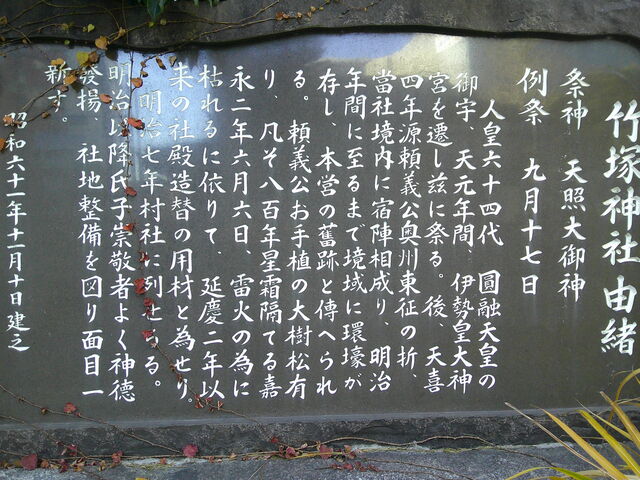 竹塚神社由緒
祭神　天照大御神
例祭　九月十七日
人皇六十四代　圓融天皇の
御宇、天元年間、伊勢皇大神
宮を遷し茲に祭る。後、天喜
四年源頼義公奥州東征の折、
當社境内に宿陣相成り、明治
年間に至るまで境域に環壕が
存し、本営の舊跡と傳へられ
る。頼義公お手植の大樹松有
り、凡そ八百年星霜隔てる嘉
永二年六月六日、雷火の為に
枯れるに依りて、延慶二年以
来の社殿造替の用材と為せり。
明治七年村社に列せらる。
明治以降氏子崇敬者よく神徳
發揚、社地整備を図り面目一
新す。
昭和六十一年十一月十日建之